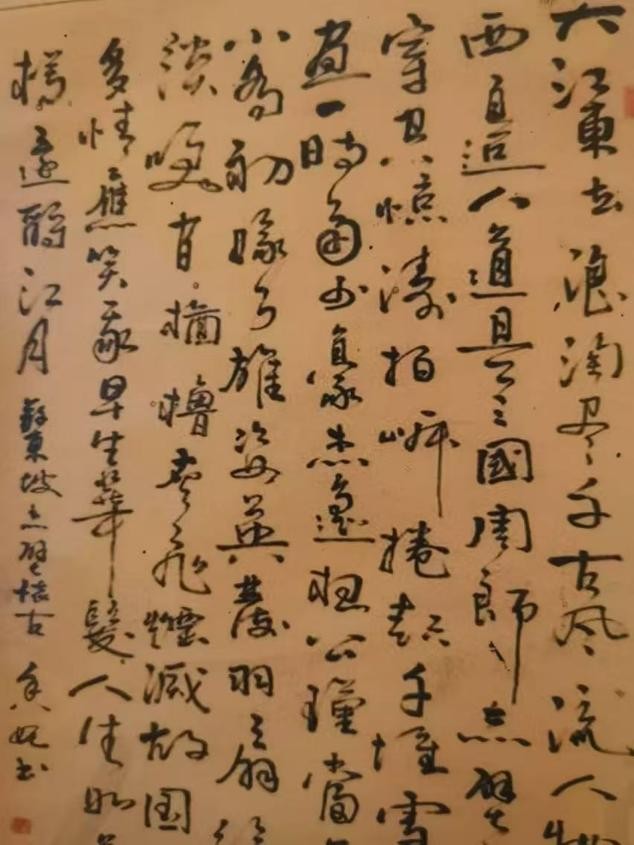 大江東去浪淘尽千古风流人物
西邊人道是三國周郎赤壁
穿空惊濤拍岸捲起千堆雪
畫一時多少豪杰遥想公瑾當
小喬初嫁了雄姿英發羽扇
談笑间檣櫓灰飞煙滅故國
多情應笑我早生華髮人生如
樽還酹江月 蘇東坡赤壁懷古 书